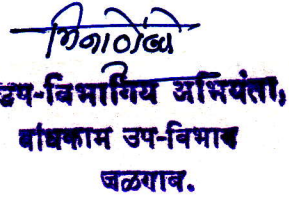 उप-विभागिय अभियंता,
बांधकाम उप-विभाग
जळगाव.